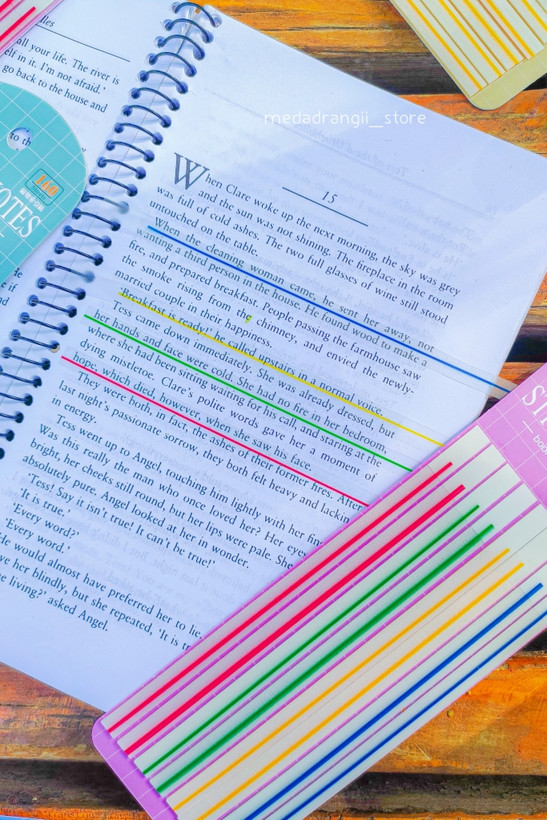 all your life. The river is
elf in it. I'm not afraid.'
go back to the house and
to th
140
OTES
medadrangii_store
15
When Clare woke up the next morning, the sky was grey
and the sun was not shining. The fireplace in the room
was full of cold ashes. The two full glasses of wine still stood
untouched on the table.
When the cleaning woman came, he sent her away, not
wanting a third person in the house. He found wood to make a
fire, and prepared breakfast. People passing the farmhouse saw
the smoke rising from the chimney, and envied the newly-
married couple in their happiness.
'Breakfast is ready!' he called upstairs in a normal voice.
Tess came down immediately. She was already dressed, but
her hands and face were cold. She had no fire in her bedroom,
where she had been sitting waiting for his call, and staring at the
dying mistletoe. Clare's polite words gave her a moment of
hope, which died, however, when she saw his face.
They were both, in fact, the ashes of their former fires. After
last night's passionate sorrow, they both felt heavy and lackin
in energy.
Tess went up to Angel, touching him lightly with her fin
Was this really the man who once loved her? Her eyes
bright, her cheeks still round, but her lips were pale. She
absolutely pure. Angel looked at her in wonder.
'Tess! Say it isn't true! It can't be true!'
'It is true.'
'Every word?'
'Every word.'
He would almost have preferred her to lie,
ve her blindly, but she repeated, 'It is tr
e living?' asked Angel.